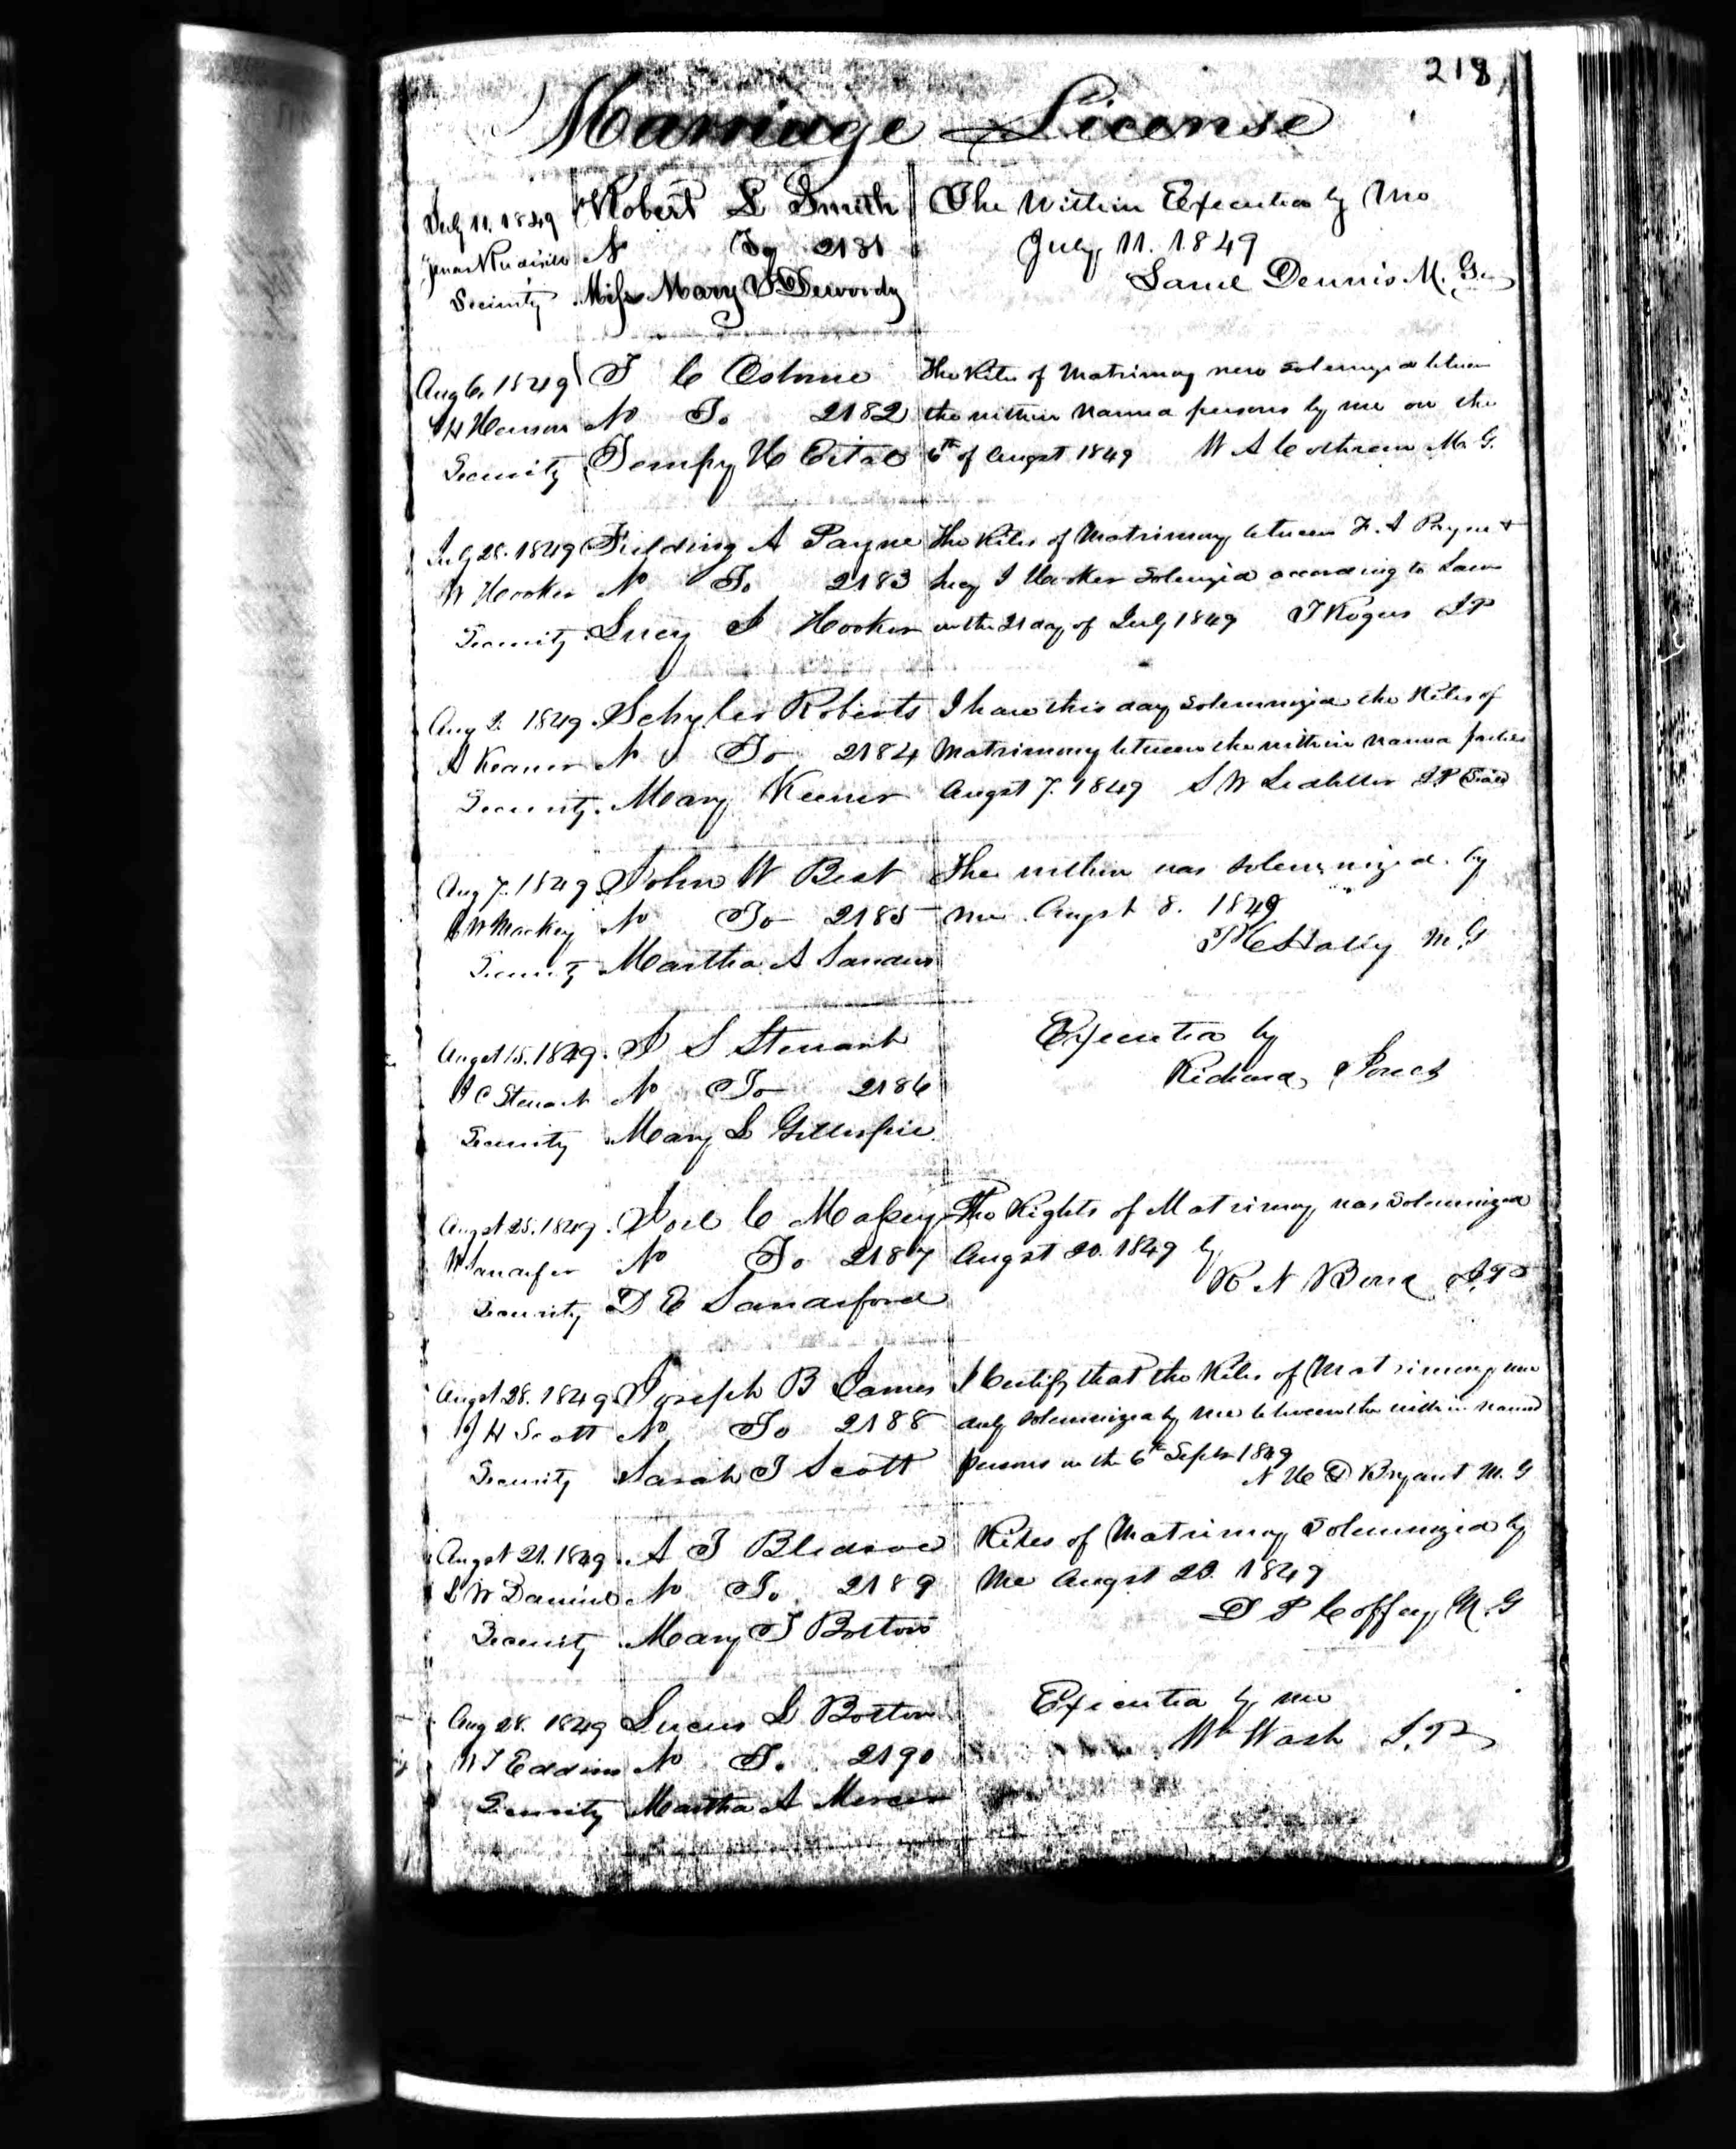 218
Marriage License
July 11. 1849 Robert L Smith The Within Executed by Me
No To 2181 July, 11. 1849
Security Miss Mary Dewoody Saml Dennis M. G.
Aug 6, 1849 T C Osborne The Rites of Matrimony were solemnized between
No To 2182 the within named persons by me on the
Security Tempy H 6th of August 1849 W A Cothran M. G.
July 28. 1849 Fielding A Payne The Rites of Matrimony between F. A Payne &
W Hooker No To 2183 Lucy J Hooker Solemnized according to Law
Security Lucy J Hooker on the 21 day of July 1849 T Rogers J P
Aug 2. 1849 Schyler Roberts I have this day solemnized the Rites of
A Keaner No To 2184 Matrimony between the within named parties
Security. Mary Keener Augst 7. 1849 S W Ledbetter J P
Aug 7. 1849 John W Best The within was solemnized by
W Mackey No To 2185 me Augst 8. 1849
Security Martha A Sanders M. G
Augst 15. 1849. J S Stewart Executed by
J C Stewart No To 2186 Richard Jones
Security Mary L Gillespie
Augst 25. 1849. Joel C Makey The Rights of Matrimony was Solemnized
No To 2187 Augst 20. 1849 by
Security D E Sandaford R N J. P
Augst 28. 1849 Joseph B James I Certify that the Rites of Matrimony were
J H Scott No To 2188 duly solemnized by me between the within named
Security Sarah J Scott persons on the 6th Septr 1849
N H D Bryant M. G
Augst 21. 1849. A J Bledsoe Rites of Matrimony Solemnized by
No To 2189 Me Augst 1849
Security Mary J Boston D P Coffey, M. G
Aug 28. 1849 Lucus L Boston Executed by me
W J Eddins No To 2190 Wm Wash J. P
Security Martha A Mercer